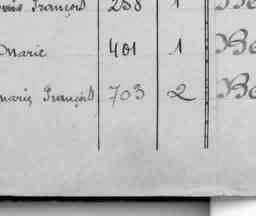 François 258 1 Be
Marie 401 1 Be
François 703 2 Be